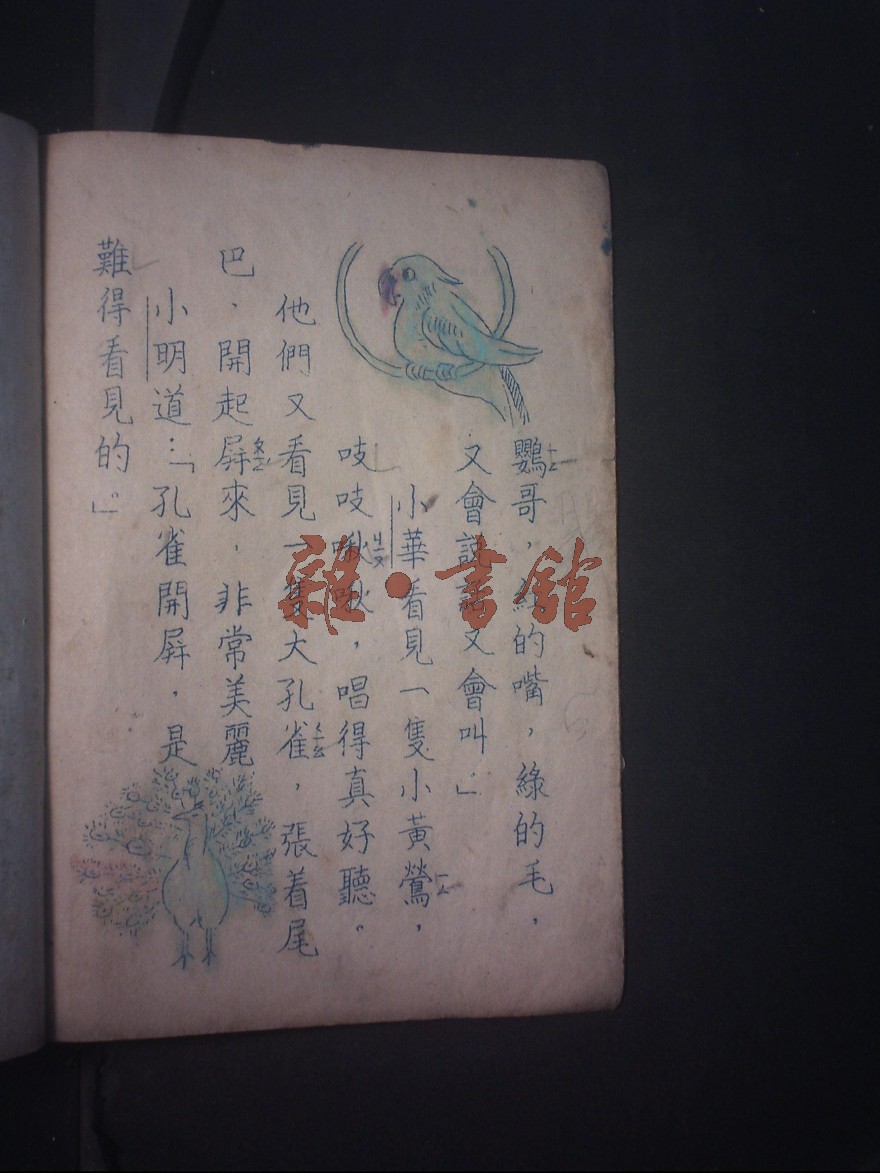 鸚哥，紅的嘴，綠的毛，
又會說話又會叫。」
小華看見一隻小黃鶯，
吱吱啾啾，唱得真好聽。
他們又看見一隻大孔雀，張着尾
巴，開起屏來，非常美麗
小明道：「孔雀開屏，是
難得看見的。」
雜·書館